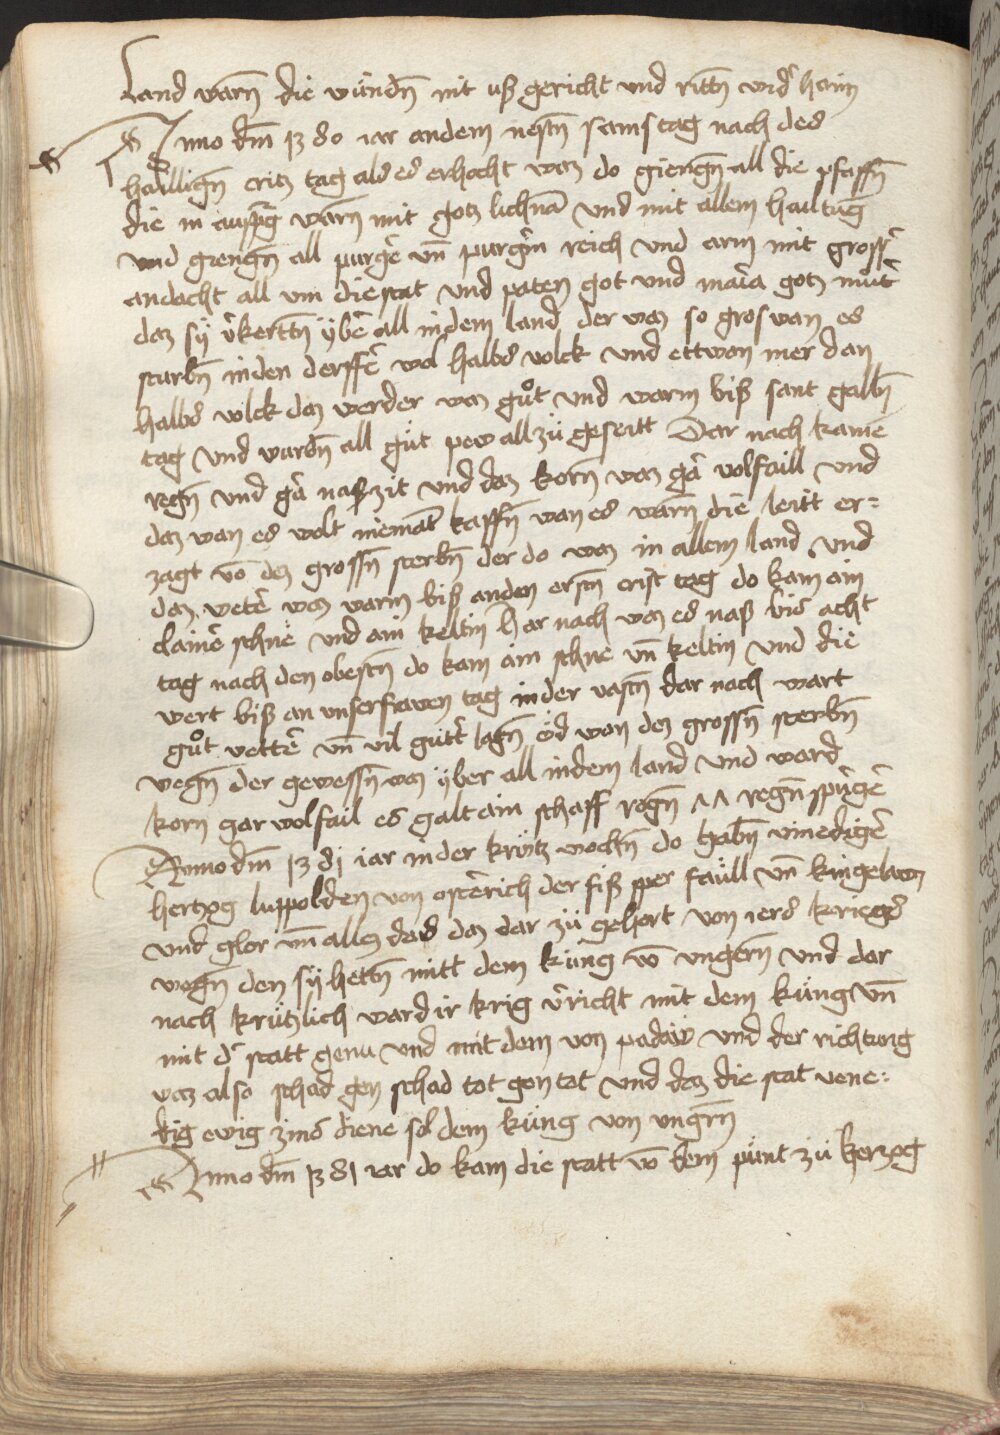 Land warn̄ die wündn̄ nit uß gericht und rittn̄ wid' haim
Anno dm̄ 1380 iar andem nestn̄ samstag nach des
haillign̄ critz tag als es erhocht waz do giengn̄ all die pfaffn̄
die in auspḡ warn̄ mit gotz lichnā und mit allem hailtūg
und giengn̄ all purge' un̄ purgri'n reich und arm mit gross'
andacht all um die stat und paten got und maria gotz mut'
daz sÿ v'kertn̄ ÿbe' all indem land der waz so gros wan es
sturbn̄ inden derffe' wol halbs volck und ettwan mer dan
halbs volck daz werder waz gůt und warm biß sant galln̄
tag und wurdn̄ all gůt pew all zů geseitt Dar nach kame
regn̄ und ga' naß zit und daz korn waz ga' volfaill und
daz wan es wolt niemat kaffn̄ wan es warn̄ die leitt er=
zagt vō dez grossn̄ sterbn̄ der do waz in allem land und
daz wete' waz warm biß anden ersten crist tag do kam ain
claine' schne und ain keltin Har nach waz es naß bis acht
tag nach den obestn̄ do kam ain schne un̄ keltin und die
wert biß an unser frawen tag inder vastn̄ dar nach wart
gůt wette' un̄ vil gůtt' lagn̄ öd von dez grossn̄ sterbn̄
wegn̄ der gewessn̄ waz ÿber all indem land und ward
korn gar wolfail es galt ain schaff rogn̄ regn̄spurge'
Anno dm̄ 1381 iar inder krütz wochn̄ do habn̄ vinedige'
hertzog luppolden von oste'rich der fiß pper faüll un̄
und glor un̄ alles das daz dar zů gehort von iers krieges
wegn̄ den sÿ hettn̄ mitt dem küng vō ungern̄ und dar
nach krützlich ward ir krig v'richt mit dem küng un̄
mit d' statt genu und mit dem von padaw und der richtung
waz also schad gen schad tot gen tot und daz die stat vene=
dig ewig zins diene sol dem küng von ungrn̄
Anno dm̄ 1381 iar do kam die statt vō dem pünt zů hertzog